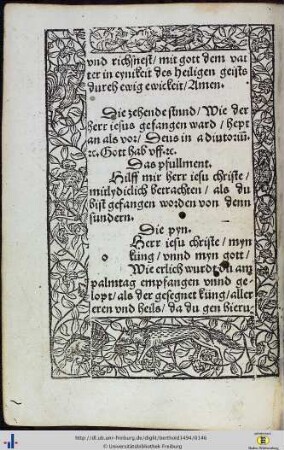 vnd richsnest/ mit gott dem vat
ter in eynikeit des heiligen geists
durch ewig ewickeit/Amen.
Die zehende stund/Wie der
herr iesus gefangen ward/ hept
an als vor/ Deus in adiutoriū
⁊c. Gott hab vff.⁊c.
Das psullment.
Hilff mir herr iesu christe/
mitlydiclich betrachten/ als du
bist gefangen worden von denn
sundern.
Die pyn.
Herr iesu christe/ myn
küng/ vnnd myn gott/
Wie erlich wurdt an am
palmtag empfangen vnnd ge-
lopt/als der gesegnet küng/aller
eren vnd heils/ da du gen hieru
http://dl.ub.uni-freiburg.de/diglit/berthold1494/0146
© Universitätsbibliothek Freiburg